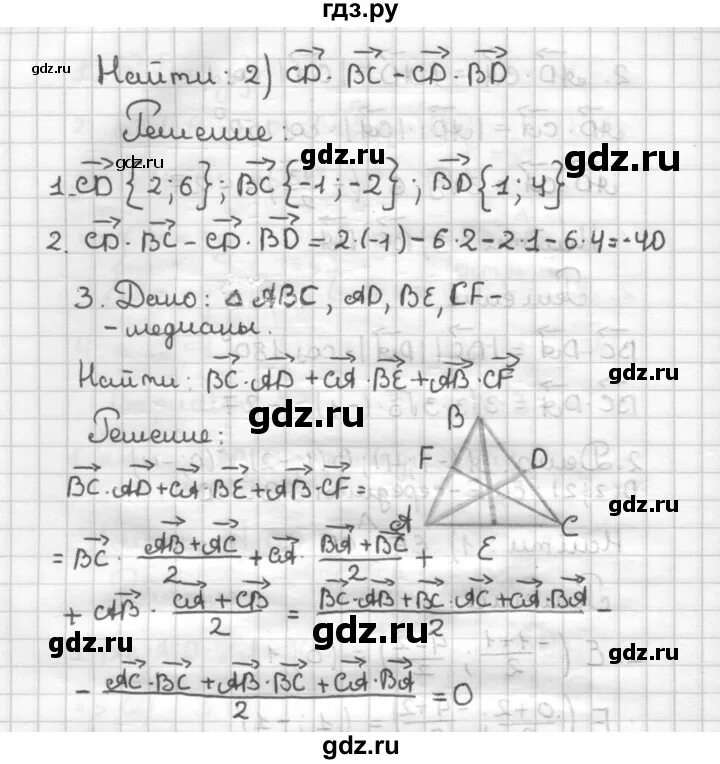 гдз.ру
gdz.ru
Найти: 2) CD · BC - CD · BD
gdz.ru
Решение:
gdz.ru
gdz.ru
1. CD {2; 6}; BC {-1; -2}; BD {1; 4}
2. CD · BC - CD · BD = 2·(-1) - 6·2 - 2·1 - 6·4 = -40
3. Дано: △ ABC, AD, BE, CF -
- медианы.
Найти: BC · AD + CA · BE + AB · CF
gdz.ru
gdz.ru
Решение:
B
F
D
BC · AD + CA · BE + AB · CF =
gdz.ru
A
C
E
= BC · (AB + AC)/2 + CA · (BA + BC)/2 +
+ AB · (CA + CB)/2 = (BC · AB + BC · AC + CA · BA)/2 -
gdz.ru
gdz.ru
gdz.ru
- (AC · BC + AB · BC + CA · BA)/2 = 0
gdz.ru